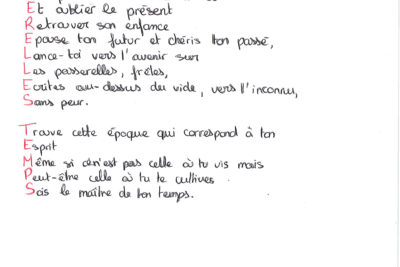 Et oublier le présent
Retrouver son enfance
Epouse ton futur et chéris ton passé,
Lance-toi vers l'avenir sur
Les passerelles, frêles,
Ecrites au-dessus du vide, vers l'inconnu,
Sans peur.
Trouve cette époque qui correspond à ton
Esprit
Même si ce n'est pas celle où tu vis mais
Peut-être celle où tu te cultives
Sois le maître de ton temps.